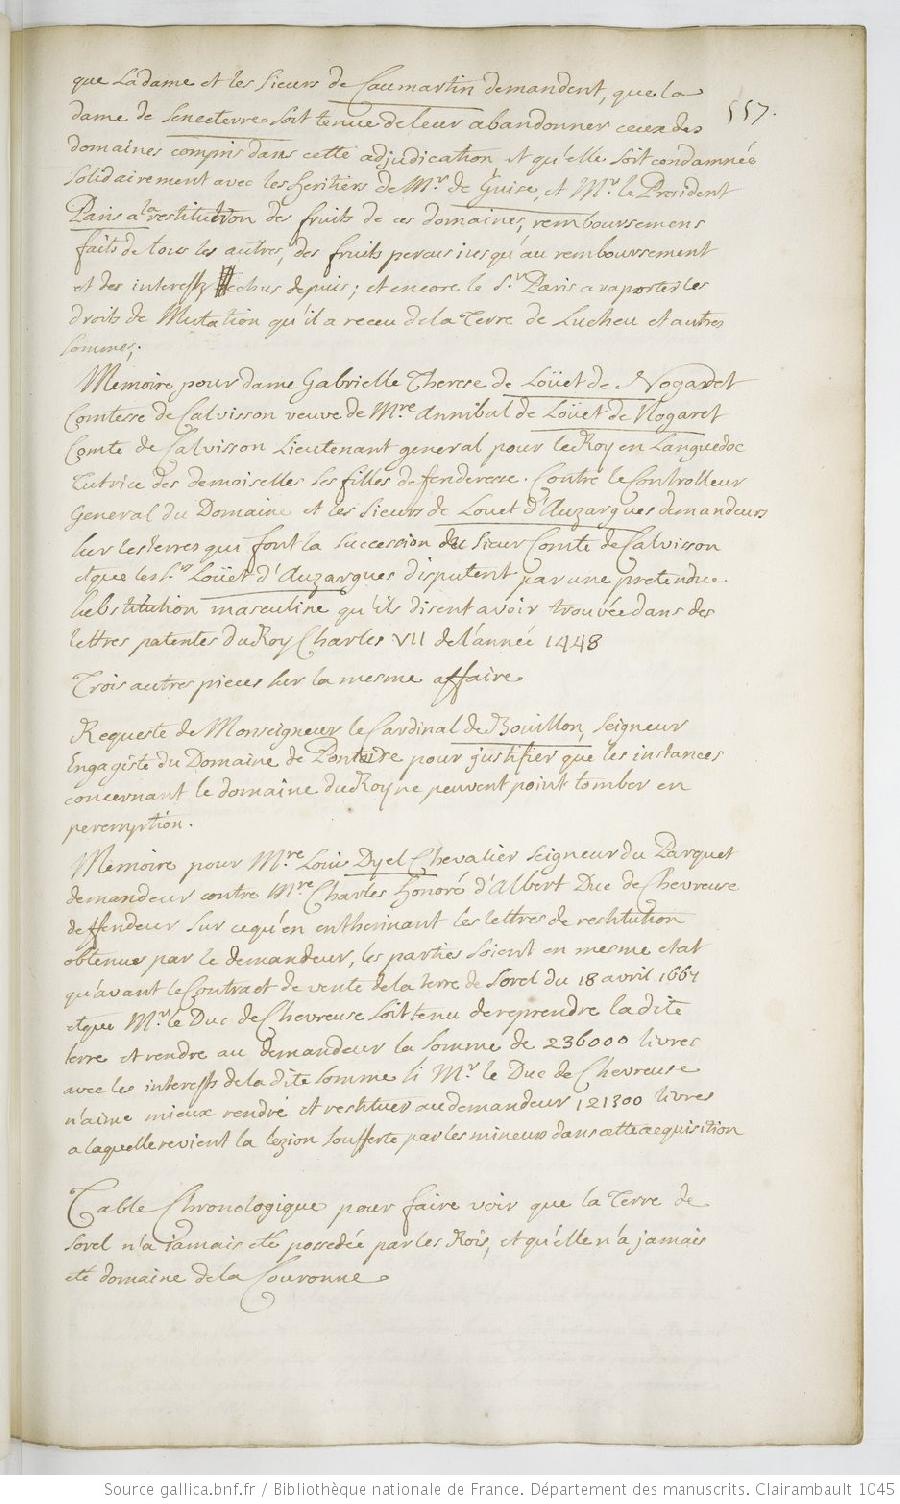 557.
que La dame et les Sieurs de Caumartin demandent, que la
dame de Senecterre soit tenue de leur abandonner ceux des
domaines compris dans cette adjudication et qu'elle soit condamnée
Solidairement avec les heritiers de Mr. de Guise, et Mr. le President
Paris a la restitution des fruits de ces domaines, remboursemens
faits de tous les autres, des fruits percus jusqu'au remboursement
et des interests echus depuis; et encore le Sr. Paris a raporter les
droits de Mutation qu'il a receu de la Terre de Lucheu et autres
Sommes;
Memoire pour dame Gabrielle Therese de Loüet de Nogaret
Comtesse de Calvisson veuve de Mre. Annibal de Loüet de Nogaret
Comte de Calvisson Lieutenant general pour le Roy en Languedoc
Tutrice des demoiselles Ses filles deffenderesse. Contre le Controlleur
General du Domaine et les Sieurs de Louet d'Auzargues demandeurs
Sur les terres qui font la succession du Sieur Comte de Calvisson
et que les Srs Loüet d'Auzargues disputent par une pretendue
Substitution masculine qu'ils disent avoir trouvée dans des
lettres patentes du Roy Charles VII de l'année 1448
Trois autres pieces sur la mesme affaire
Requeste de Monseigneur le Cardinal de Bouillon, Seigneur
Engagiste du Domaine de Pontoise pour justifier que les instances
concernant le domaine du Roy ne peuvent point tomber en
peremption.
Memoire pour Mre. Louis Dyel Chevalier Seigneur du Parquet
demandeur contre Mre. Charles Honoré d'Albert Duc de Chevreuse
deffendeur Sur ce qu'en entherinant les lettres de restitution
obtenues par le demandeur, les parties soient en mesme etat
qu'avant le Contract de vente de la terre de Sorel du 18 avril 1667
et que Mr. le Duc de Chevreuse soit tenu de reprendre la dite
terre et rendre au demandeur la Somme de 236000 livres
avec les interests de la dite Somme si Mr. le Duc de Chevreuse
n'aime mieux rendre et restituer au demandeur 121300 livres
a laquelle revient la lezion soufferte par les mineurs dans cette acquisition
Table Chronologique pour faire voir que la Terre de
Sorel n'a jamais eté possedée par les Rois, et qu'elle n'a jamais
eté domaine de la Couronne
Source gallica.bnf.fr / Bibliothèque nationale de France. Département des manuscrits. Clairambault 1045